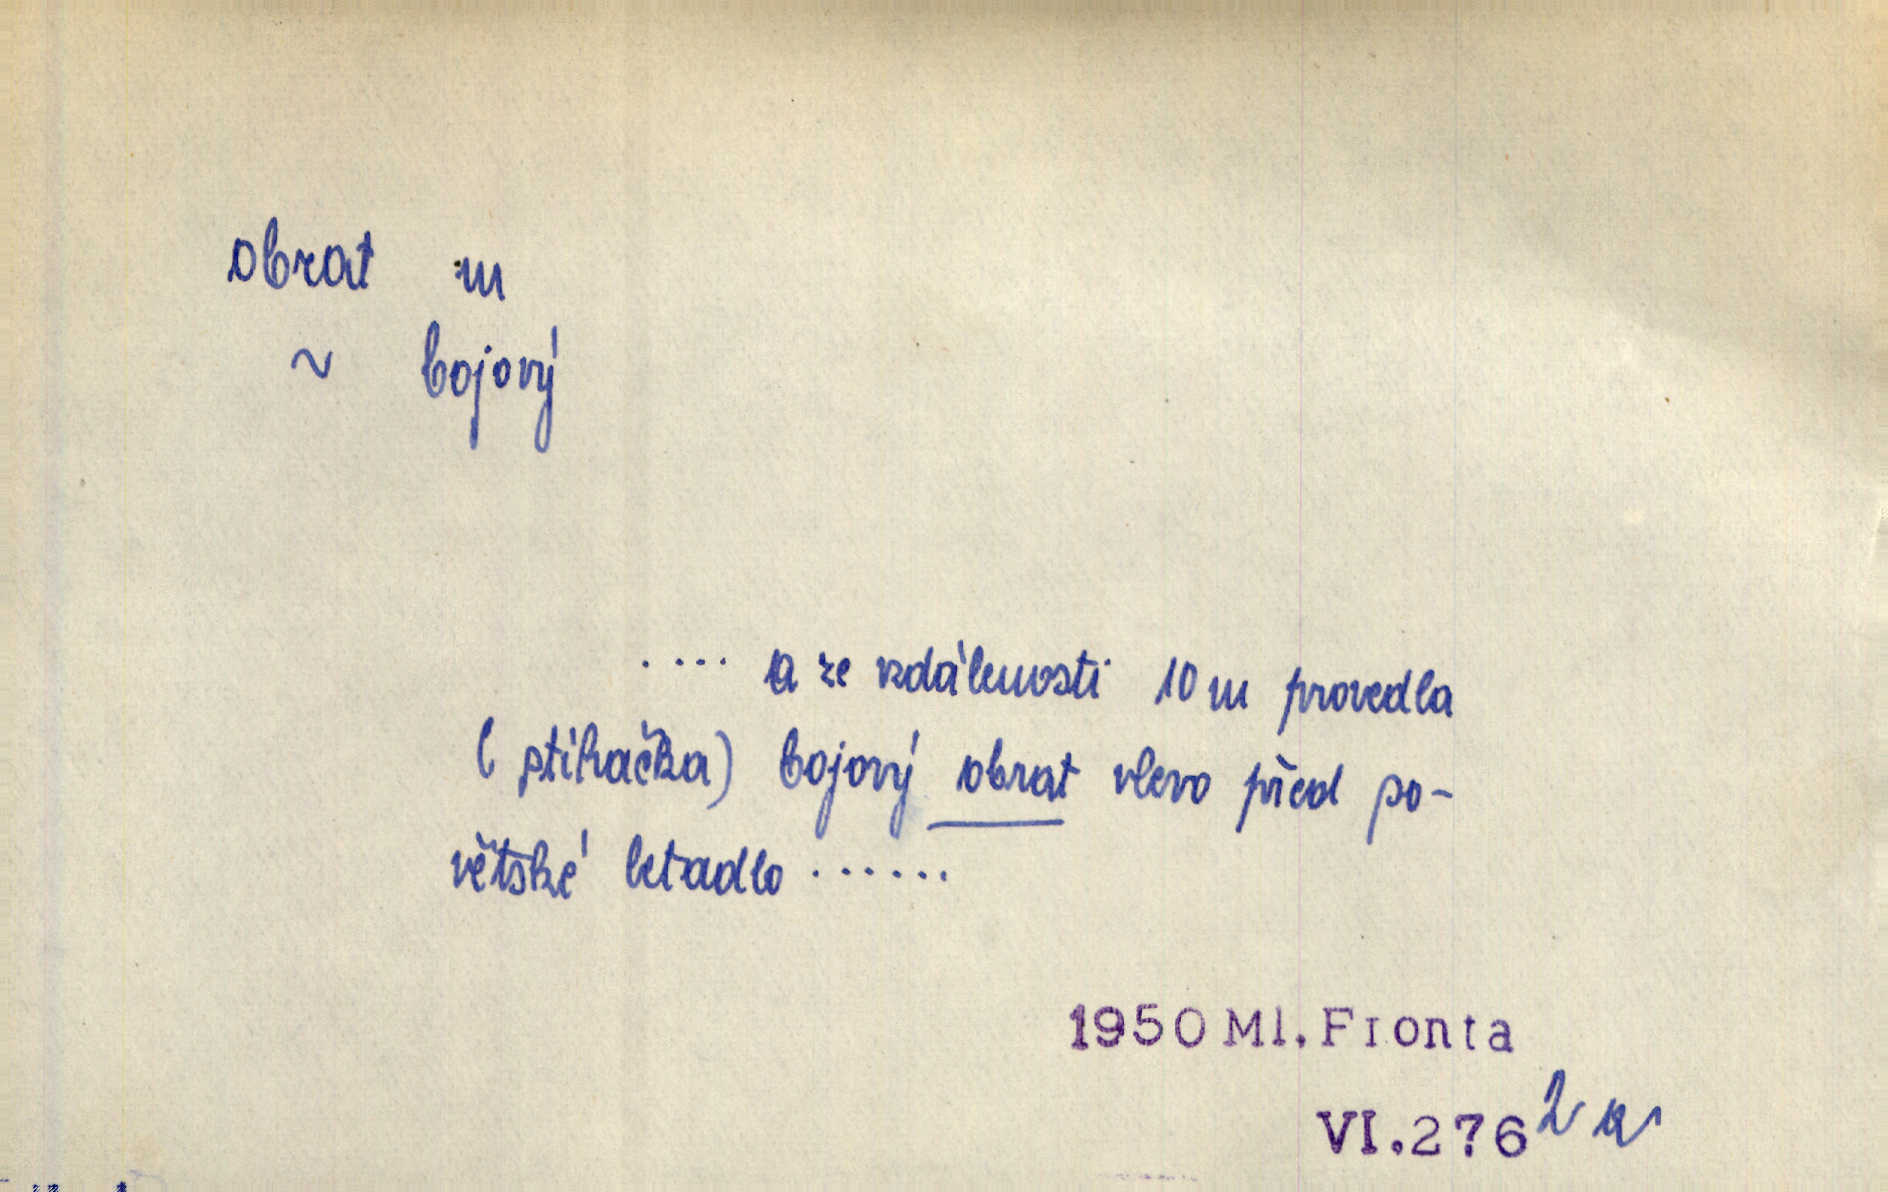 obrat m
~ bojový
.... a ze vzdálenosti 10 m provedla
(stihačka) bojový obrat vlevo před po-
větské letadlo ......
1950 Ml. Fronta
VI. 276 2